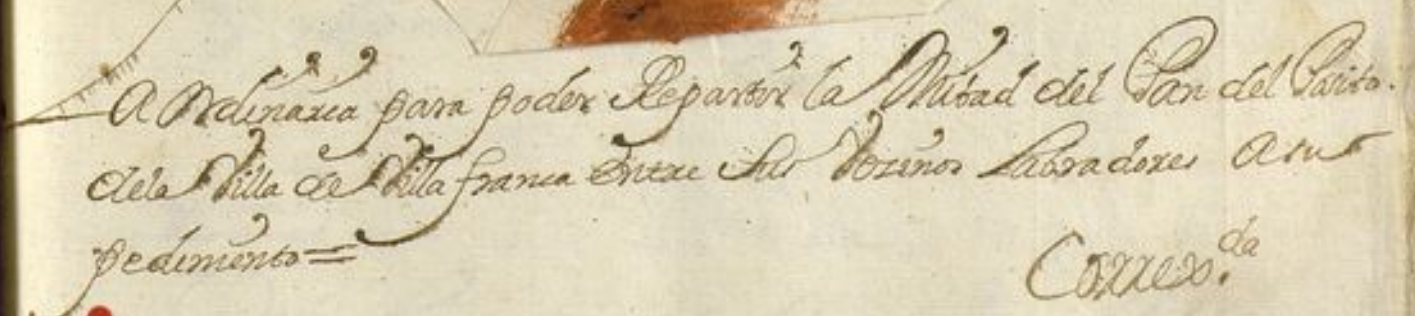 A Ordinaria para poder Repartir la Mitad del Pan del Posito.
dela Villa de Villa franca entre Sus Vezinos Labradores a su
pedimento =
Correx.da